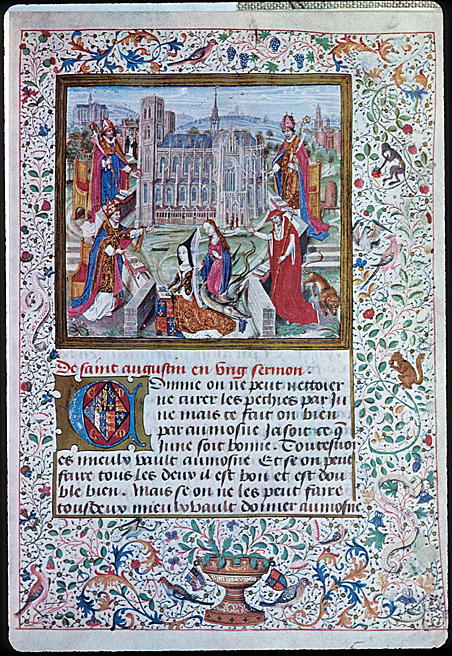 De saint augustin en ung sermon.
Comme on ne peut nettoier
ne curer les pechies par Ju
ne mais ce fait on bien
par aumosne Ja soit ce q
June soit bonne. Toutesuoi
es mieulx vault aumosne. Et se on peut
faire tous les deux il est bon et est dou
ble bien. Mais se on ne les peut faire
tousdeux mieulx vault donner aumosne